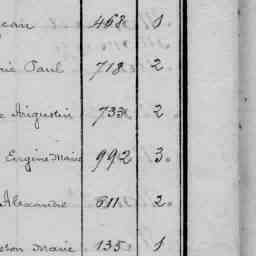 ean 468 1
Paul 718 2
Augustin 733 2
Eugène Marie 992 3
Alexandre 611 2
Marie 135 1